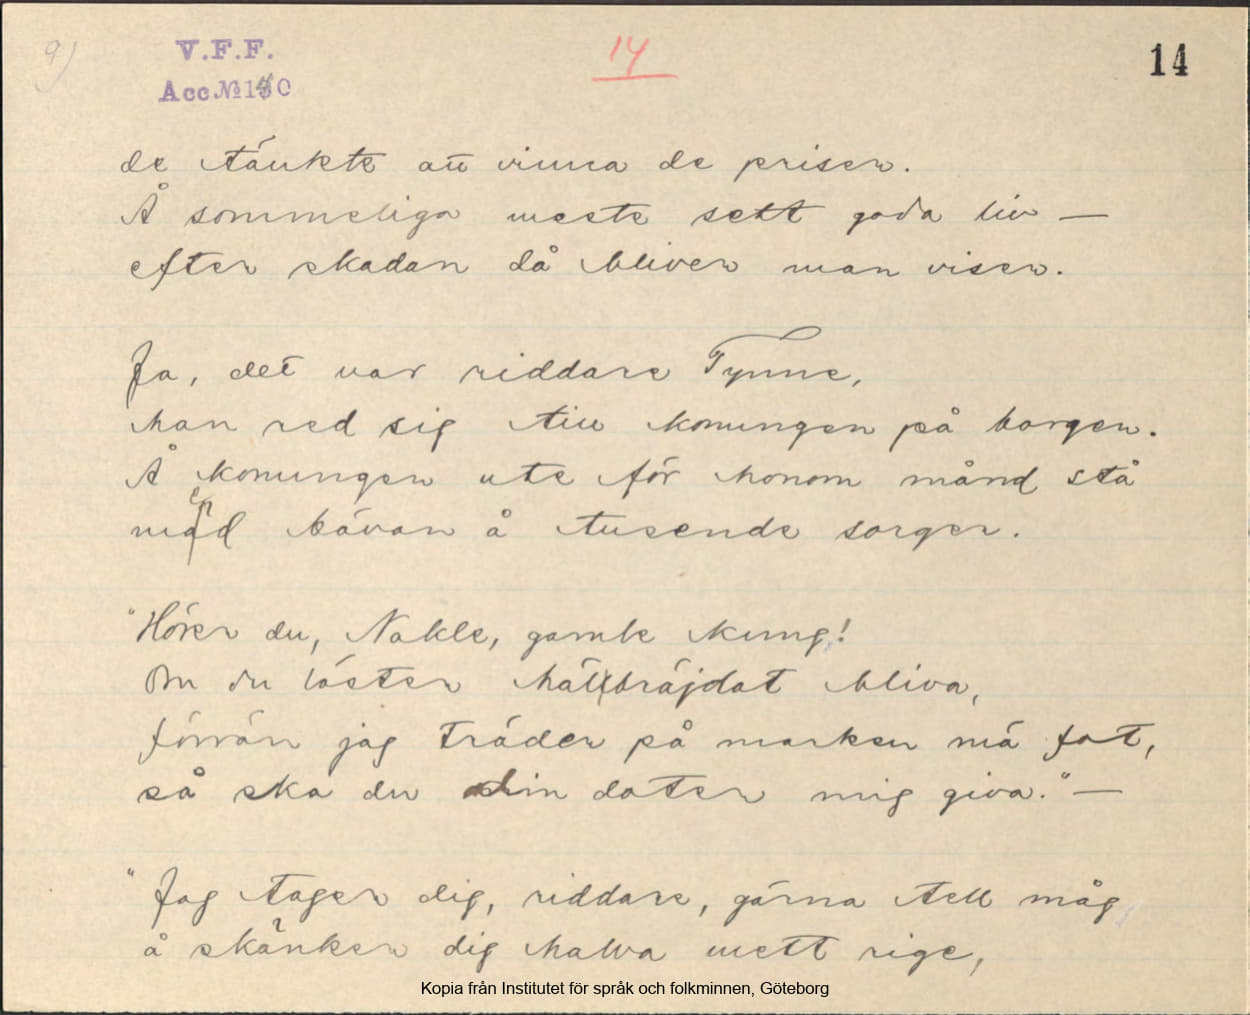 9)
V.F.F.
Acc. № 140
14
14
de tänkte att vinna de prisen.
Å sommeliga meste sett goda liv —
efter skadan då bliver man visen.
Ja, det var riddare Tynne,
han red sig till konungen på borgen.
Å konungen ute för honom månd stå
mäd bävan å tusende sorger.
"Hörer du, Nakle, gamle kung!
Om du låster hälbräjdat bliva,
förrän jag träder på marken må fot,
så ska du din dotter mig giva." —
"Jag tager dig, riddare, gärna tell måg
å skänker dig halva mett rige,
Kopia från Institutet för språk och folkminnen, Göteborg